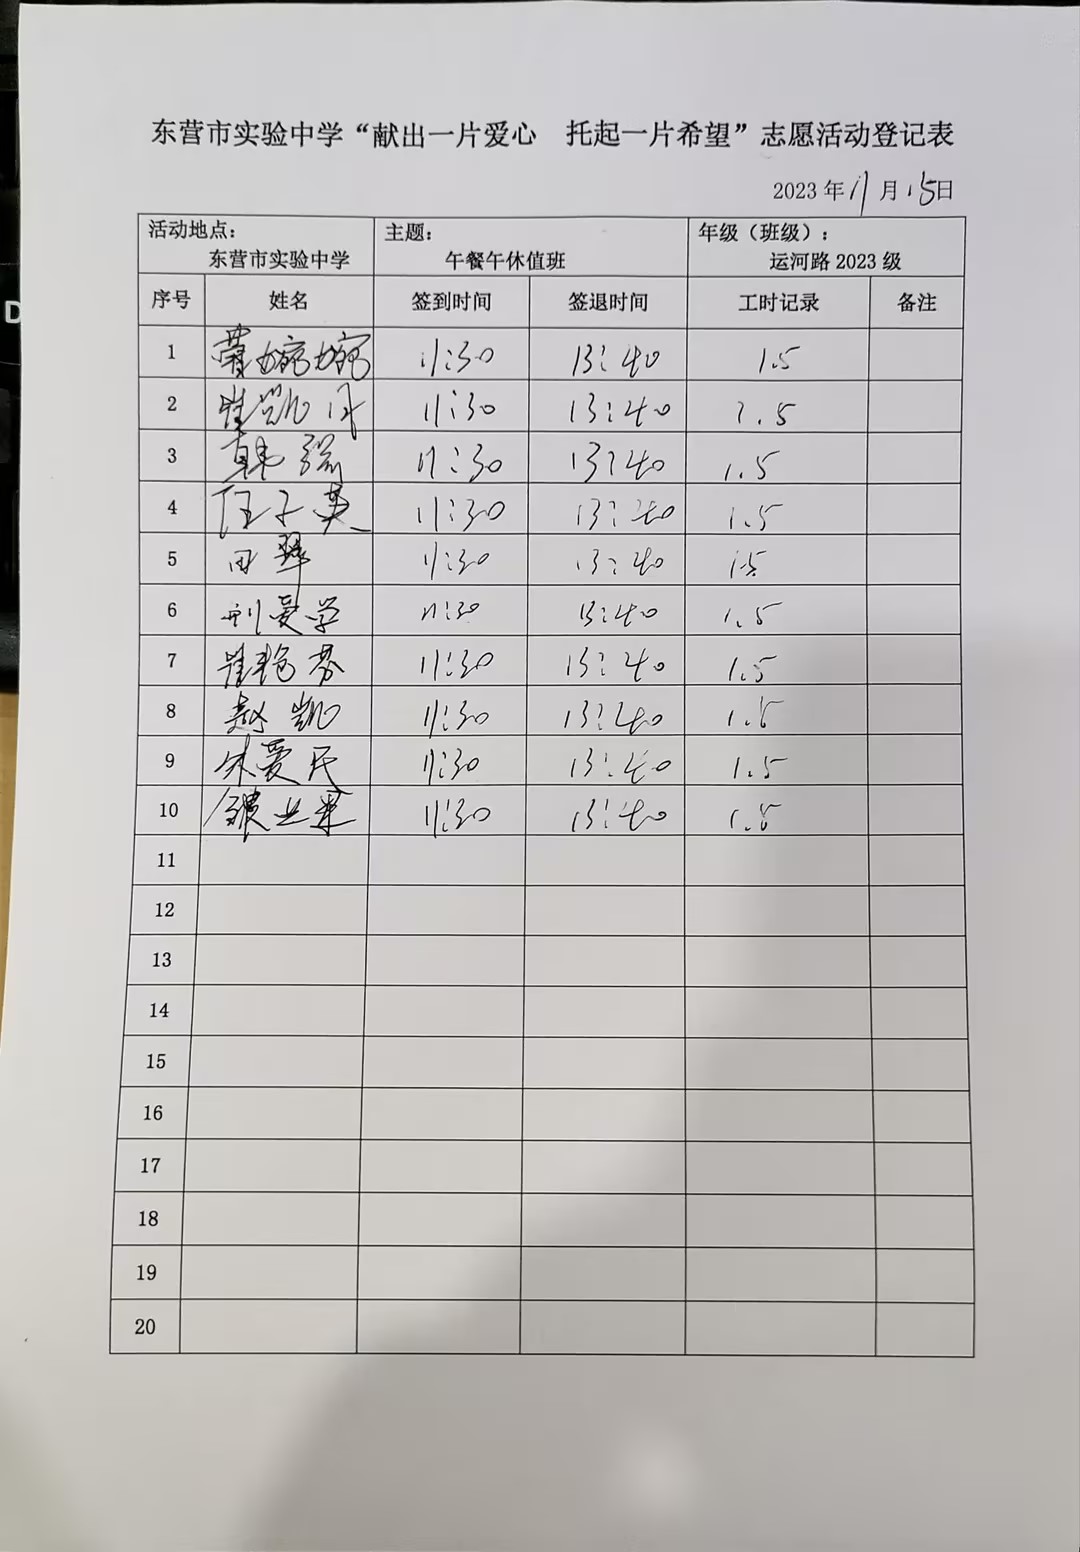 东营市实验中学“献出一片爱心 托起一片希望”志愿活动登记表
2023年11月15日
活动地点： 东营市实验中学 主题： 午餐午休值班 年级（班级）： 运河路2023级
序号 姓名 签到时间 签退时间 工时记录 备注
1 11:30 13:40 1.5
2 崔凯月 11:30 13:40 1.5
3 韩瑞 11:30 13:40 1.5
4 任子英 11:30 13:40 1.5
5 田 11:30 13:40 1.5
6 荆爱学 11:30 13:40 1.5
7 崔艳芬 11:30 13:40 1.5
8 赵凯 11:30 13:40 1.5
9 朱爱民 11:30 13:40 1.5
10 11:30 13:40 1.5
11
12
13
14
15
16
17
18
19
20